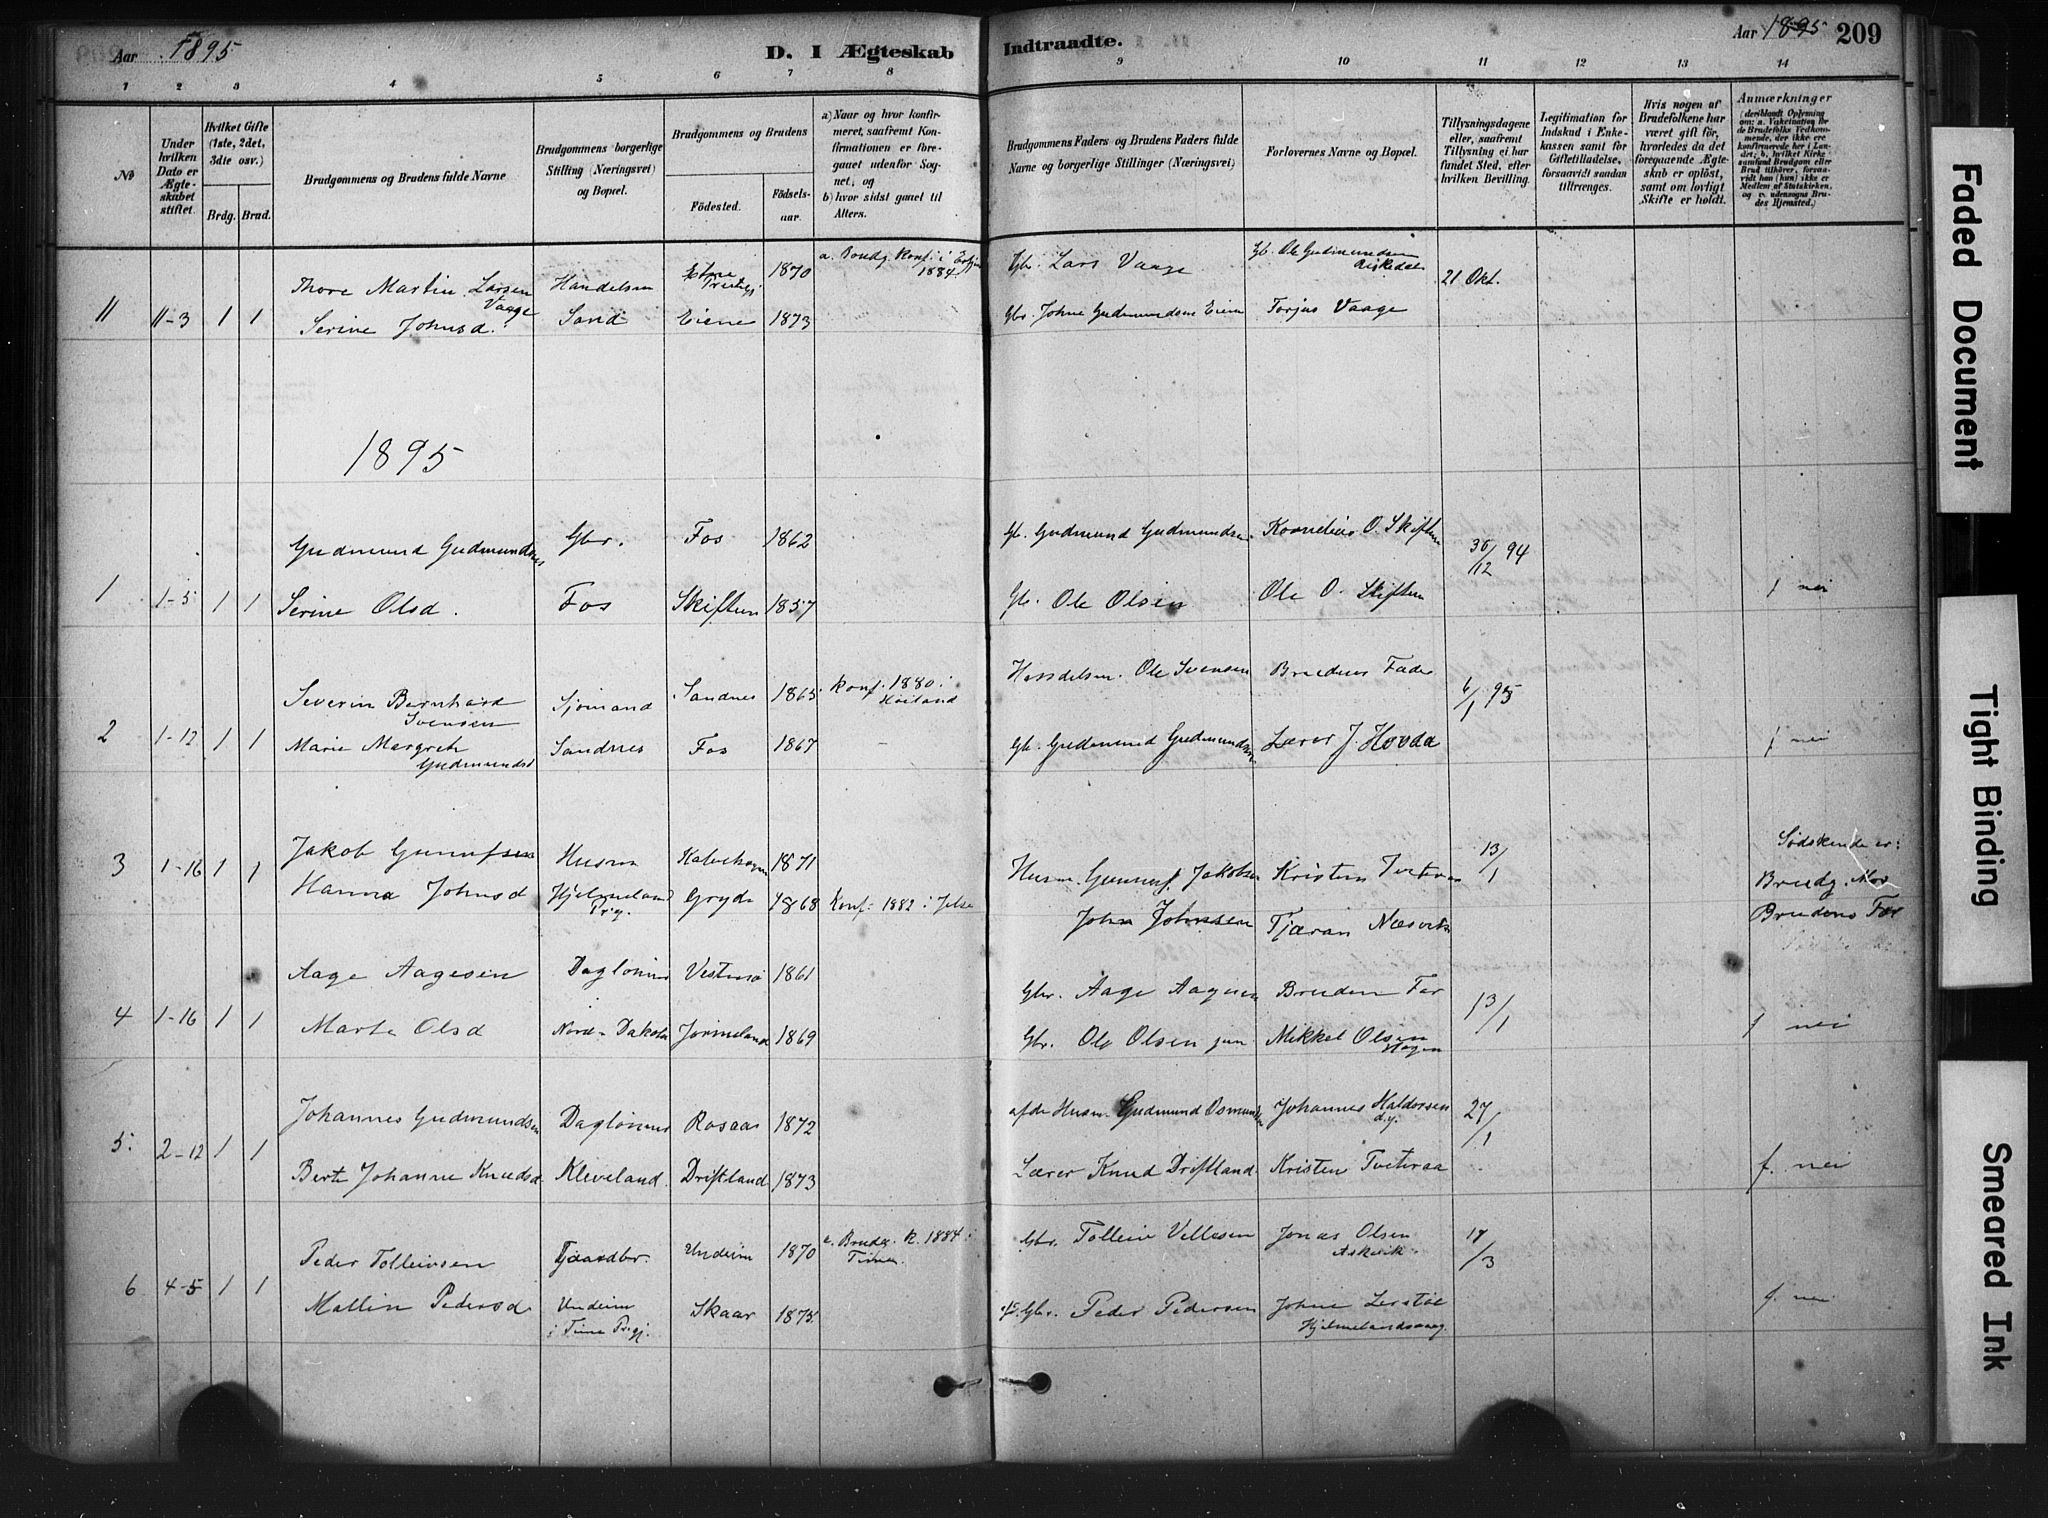 Aar 1895
D. I Ægteskab
Indtraadte.
Aar 1895
209
1 2 3 4 5 6 7 8 9 10 11 12 13 14
No
Under hvilken Dato er Ægteskabet stiftet.
Hvilket Gifte (1ste, 2det, 3die osv.)
Brdg. Brud.
Brudgommens og Brudens fulde Navne
Brudgommens borgerlige Stilling (Næringsvei) og Bopæl.
Brudgommens og Brudens
Födested.
Födselsaar.
a) Naar og hvor konfirmeret, saafremt Konfirmationen er foregaaet udenfor Sognet, og
b) hvor sidst gaaet til Alters.
Brudgommens Faders og Brudens Faders fulde Navne og borgerlige Stillinger (Næringsvei)
Forlovernes Navne og Bopæl.
Tillysningsdagene eller, saafremt Tillysning ei har fundet Sted, efter hvilken Bevilling.
Legitimation for Indskud i Enkekassen samt for Giftetilladelse, forsaavidt saadan tiltrænges.
Hvis nogen af Brudefolkene har været gift før, hvorledes da det foregaaende Ægteskab er oplöst, samt om lovligt Skifte er holdt.
Anmærkninger
(deriblandt Oplysning om: a. Vakcination for de Brudefolks Vedkommende, der ikke ere konfirmerede her i Landet; b. hvilket Kirkesamfund Brudgom eller Brud tilhörer, forsaavidt han (hun) ikke er Medlem af Statskirken, og c. udensogns Brudes Hjemsted.)
11 11-3 1 1
Thore Martin Larsen Vaage
Handelsm 1870
a. Brudg. Konf. i 1884
Gbr. Lars Vaage
Gb. Ole Gudmundsen
21 Okt.
Serine Johnsd.
Sand Eiene 1873
Gbr. Johne Gudmundsen Eiene
Torjus Vaage
1895
Gudmund Gudmundsen
Gbr. Fos 1862
Gb. Gudmund Gudmundsen
Kornelius O. Skiftun
30/12 94
1 1-5 1 1
Serine Olsd.
Fos Skiftun 1857
Gb. Ole Olsen
Ole O. Skiftun
f nei
Severin Bernhard Svensen
Sjömand Sandnes 1865
Konf. 1880 i Höiland
Handelsm. Ole Svensen
Brudens Fader
6/1 95
2 1-12 1 1
Marie Margreth Gudmundsd
Sandnes Fos 1867 -
Gb. Gudmund Gudmundsen
Lærer J. Hovda
f nei
3 1-16 1 1
Jakob Gunnufsen
Husm 1871
Husm. Gunnuf Jakobsen
Kristen Tveteraa
13/1
Södskende er:
Brudg. Mor
Brudens Far
Hanna Johnsd
Hjelmeland Prg. Gryde 1868
Konf: 1882 i Jelse
John Johnsen
Tjæran Næsvik
Aage Aagesen
Daglönner 1861
Gbr. Aage Aagesen
Brudens Far
13/1
4 1-16 1 1
Marta Olsd
Nord-Dakota Jörmeland 1869
Gbr. Ole Olsen jun
Mikkel Olsen Hagen
f nei
Johannes Gudmundsen
Daglönner Rosaas 1872
afdr Husm. Gudmund Osmundsen
Johannes Haldorsen
27/1
5. 2-12 1 1
Berte Johanne Knudsd
Kleveland Driftland 1873
Lærer Knud Driftland
Kristen Tveteraa
f. nei
Peder Tolleivsen
Gaardbr. Undeim 1870
a. Brudg. K. 1884 i Time
Gbr. Tolleiv Villesen
Jonas Olsen Askvik
17/3
6 4-5 1 1
Mallin Pedersd
Undeim i Time Prgj. Skaar 1875
Gbr. Peder Pedersen
Johne Lerstöl Hjelmelandsvaag
f. nei
Faded Document
Tight Binding
Smeared Ink